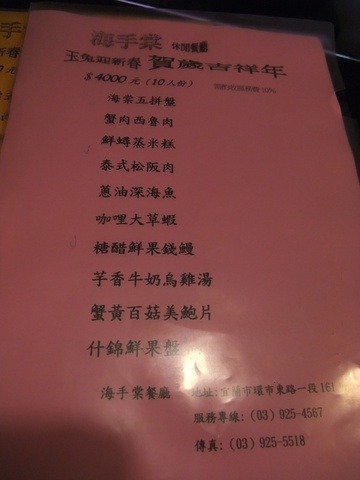 海手棠 休閒餐廳
玉兔迎新春 賀歲吉祥年
$4000元(10人份)
海棠五拼盤
蟹肉西魯肉
鮮蟳蒸米糕
泰式松阪肉
蔥油深海魚
咖哩大草蝦
糖醋鮮果錢鰻
芋香牛奶烏雞湯
蟹黃百菇美鮑片
什錦鮮果盤
海手棠餐廳 地址:宜蘭市環市東路一段161
服務專線:(03)925-4567
傳真:(03)925-5518